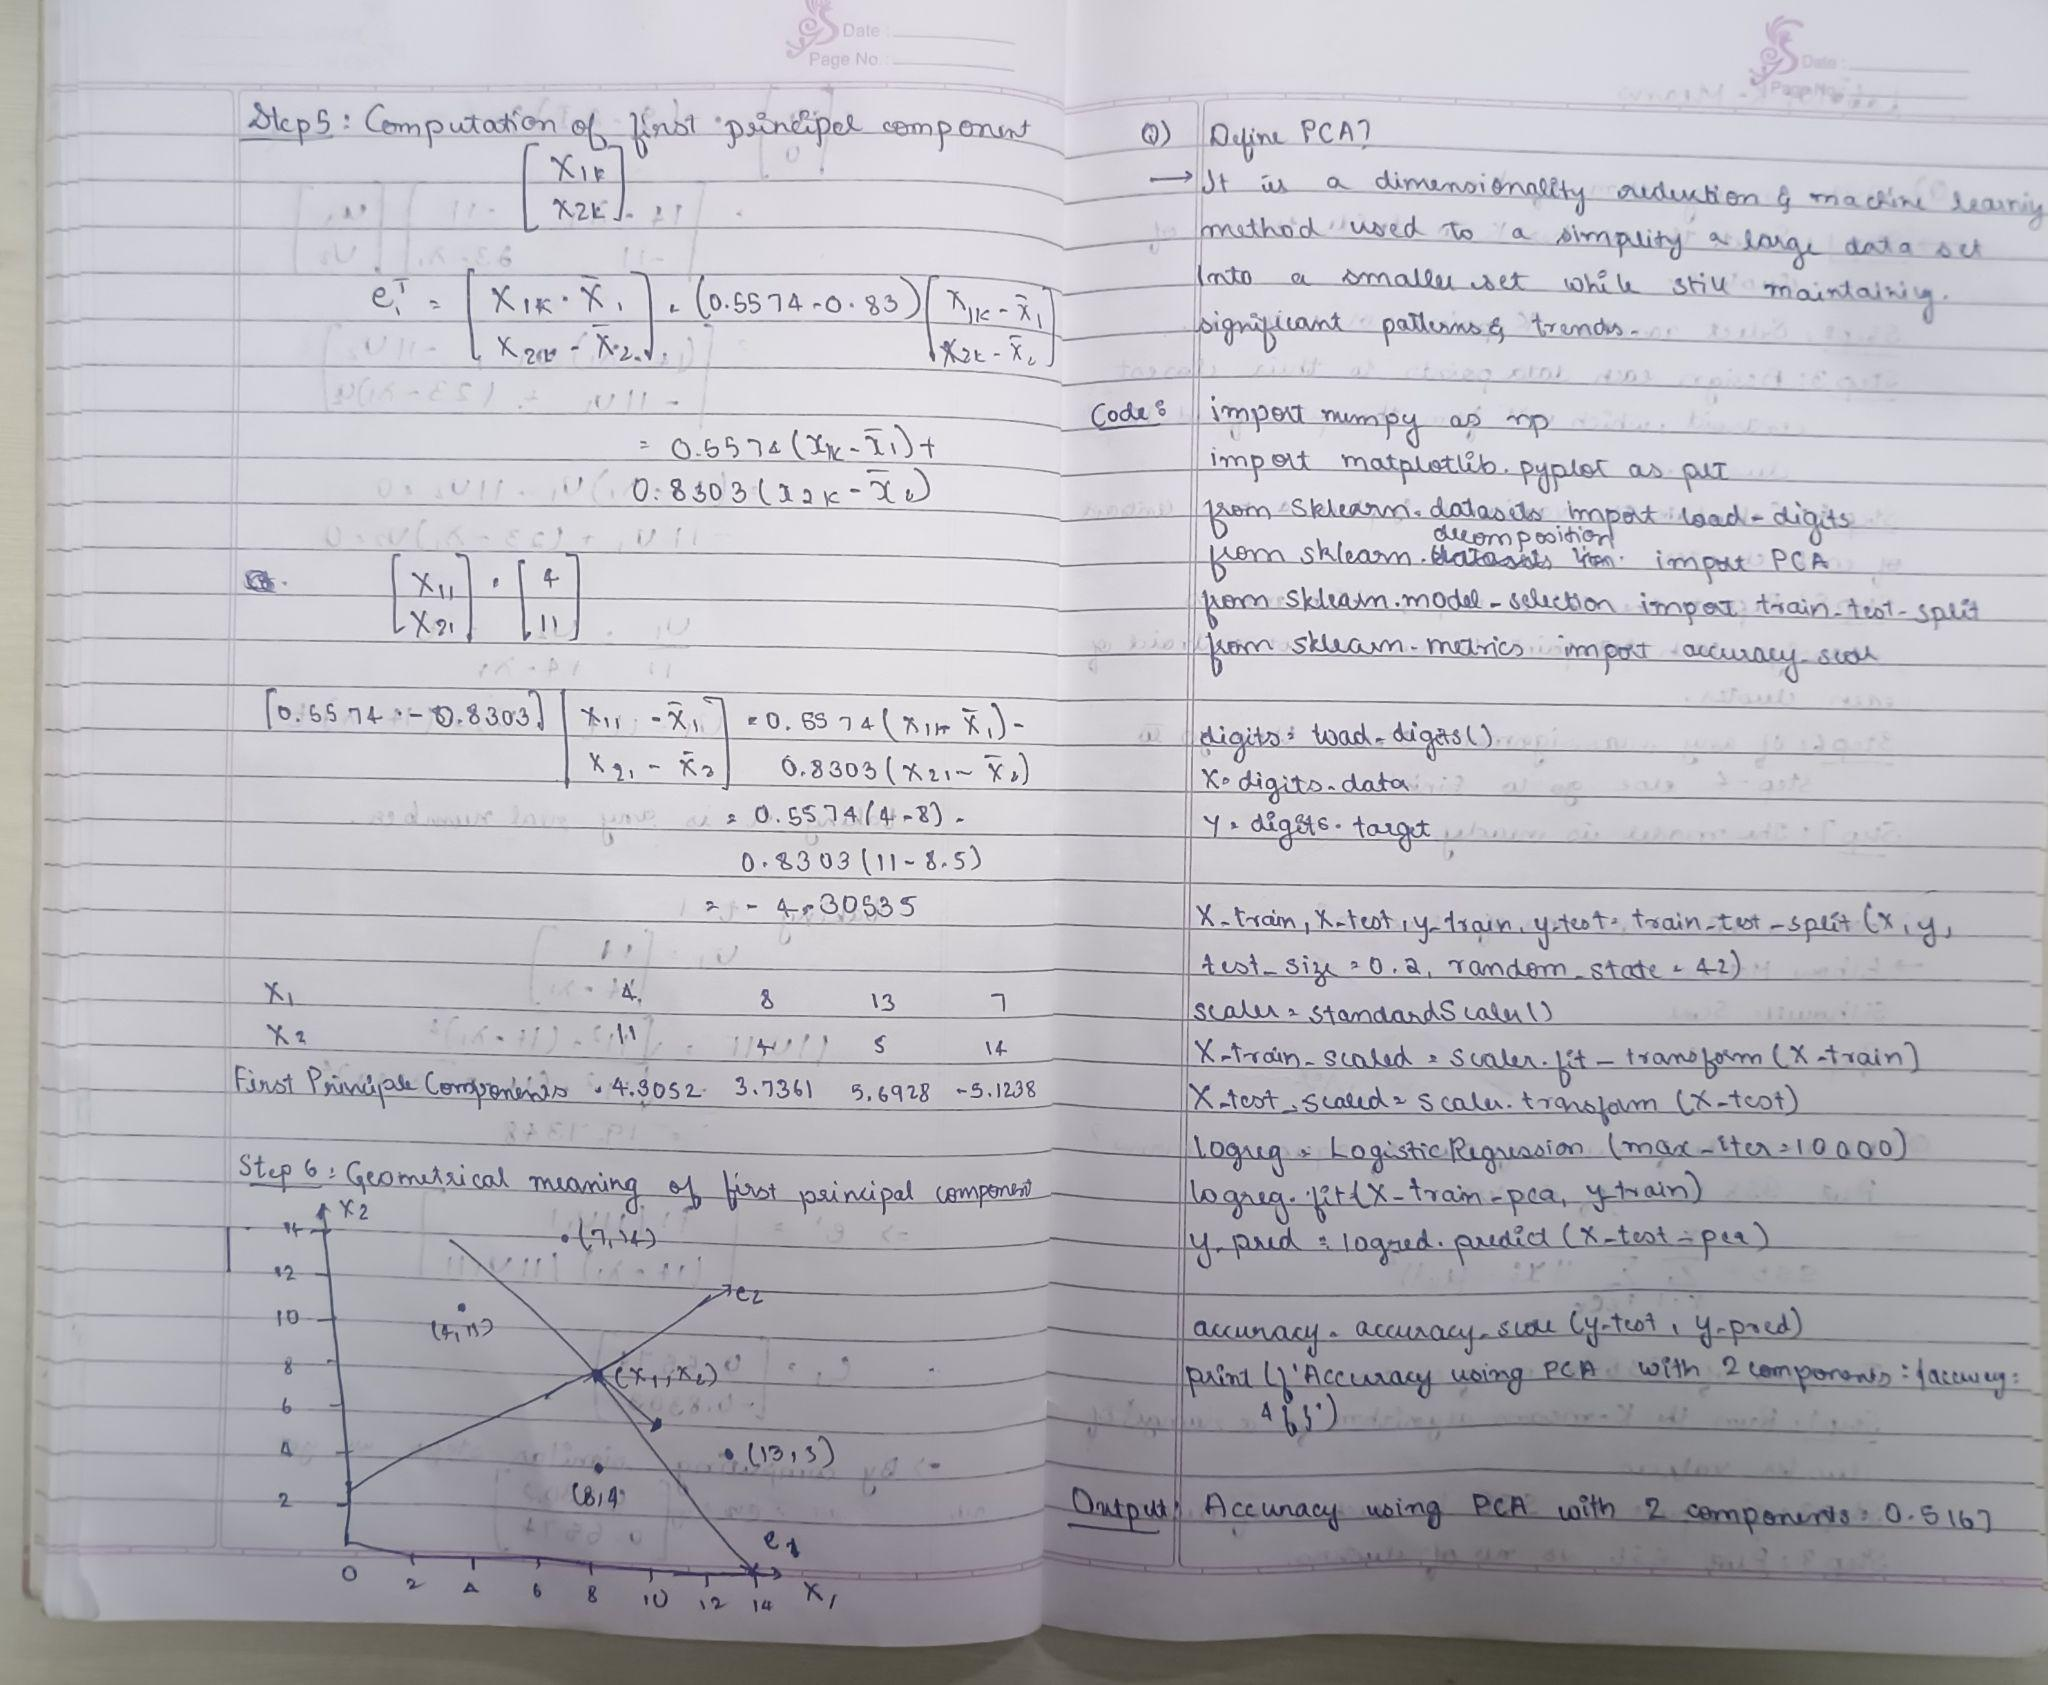 Date :
Page No. :
Step 5 : Computation of first principal component
[ X1k
X2k ]
e1^T = [ X1K - X̄1
X2k - X̄2 ] = (0.5574 -0.83) [ X1K - X̄1
X2k - X̄2 ]
= 0.5574 (X1K - X̄1) +
0.8303 (X2K - X̄2)
[ X11
X21 ] = [ 4
11 ]
[0.5574 - 0.8303] [ X11 - X̄1
X21 - X̄2 ] = 0.5574 (X11 - X̄1) -
0.8303 (X21 - X̄2)
= 0.5574 (4 - 8) -
0.8303 (11 - 8.5)
= - 4.30535
X1 4 8 13 7
X2 11 4 5 14
First Principle Components - 4.3052 3.7361 5.6928 -5.1238
Step 6 : Geometrical meaning of first principal component
X2
14
12
10
8
6
4
2
(7,14)
(4,11)
e2
(X1, X2)
(13,5)
(8,4
e1
0 2 4 6 8 10 12 14 X1
Date :
Page No. :
Q) Define PCA?
→ It is a dimensionality reduction & machine learning
method used to a simplify a large data set
into a smaller set while still maintaining.
significant patterns & trends.
Code : import numpy as np
import matplotlib.pyplot as plt
from sklearn.datasets import load-digits
decomposition
from sklearn. import PCA
from sklearn.model-selection import train-test-split
from sklearn.metrics import accuracy-score
digits = load-digits()
X = digits.data
Y = digits.target
X-train, X-test, y-train, y-test = train-test-split (X, y,
test_size = 0.2, random_state = 42)
scaler = StandardScaler()
X-train-scaled = scaler.fit-transform (X-train)
X-test-scaled = scaler.transform (X-test)
logreg = LogisticRegression (max-iter = 10000)
logreg.fit(X-train-pca, y-train)
y-pred = logred.predict (X-test-pca)
accuracy = accuracy-score (y-test, y-pred)
print (f'Accuracy using PCA with 2 components :{accuracy:
4f}')
Output: Accuracy using PCA with 2 components: 0.5167